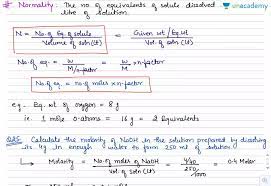 # Normality: The no. of equivalents of solute dissolved
litre of solution.
unacademy
N = No. of Eq. of solute / Volume of soln (Lt) = Given wt / Eq. wt / Vol. of soln (Lt)
No. of eq. = w / M/n-factor = w/M × n-factor
No. of eq. = no. of moles × n-factor
eg. Eq. wt of oxygen = 8 g
i.e. 1 mole O-atoms = 16 g = 2 Equivalents
Calculate the molarity of NaOH in the solution prepared by dissolving
its 4 g in enough water to form 250 ml of solution.
→ Molarity = No. of moles of NaOH / Vol. of soln (Lt) = 4/40 / 250/1000 = 0.4 Molar